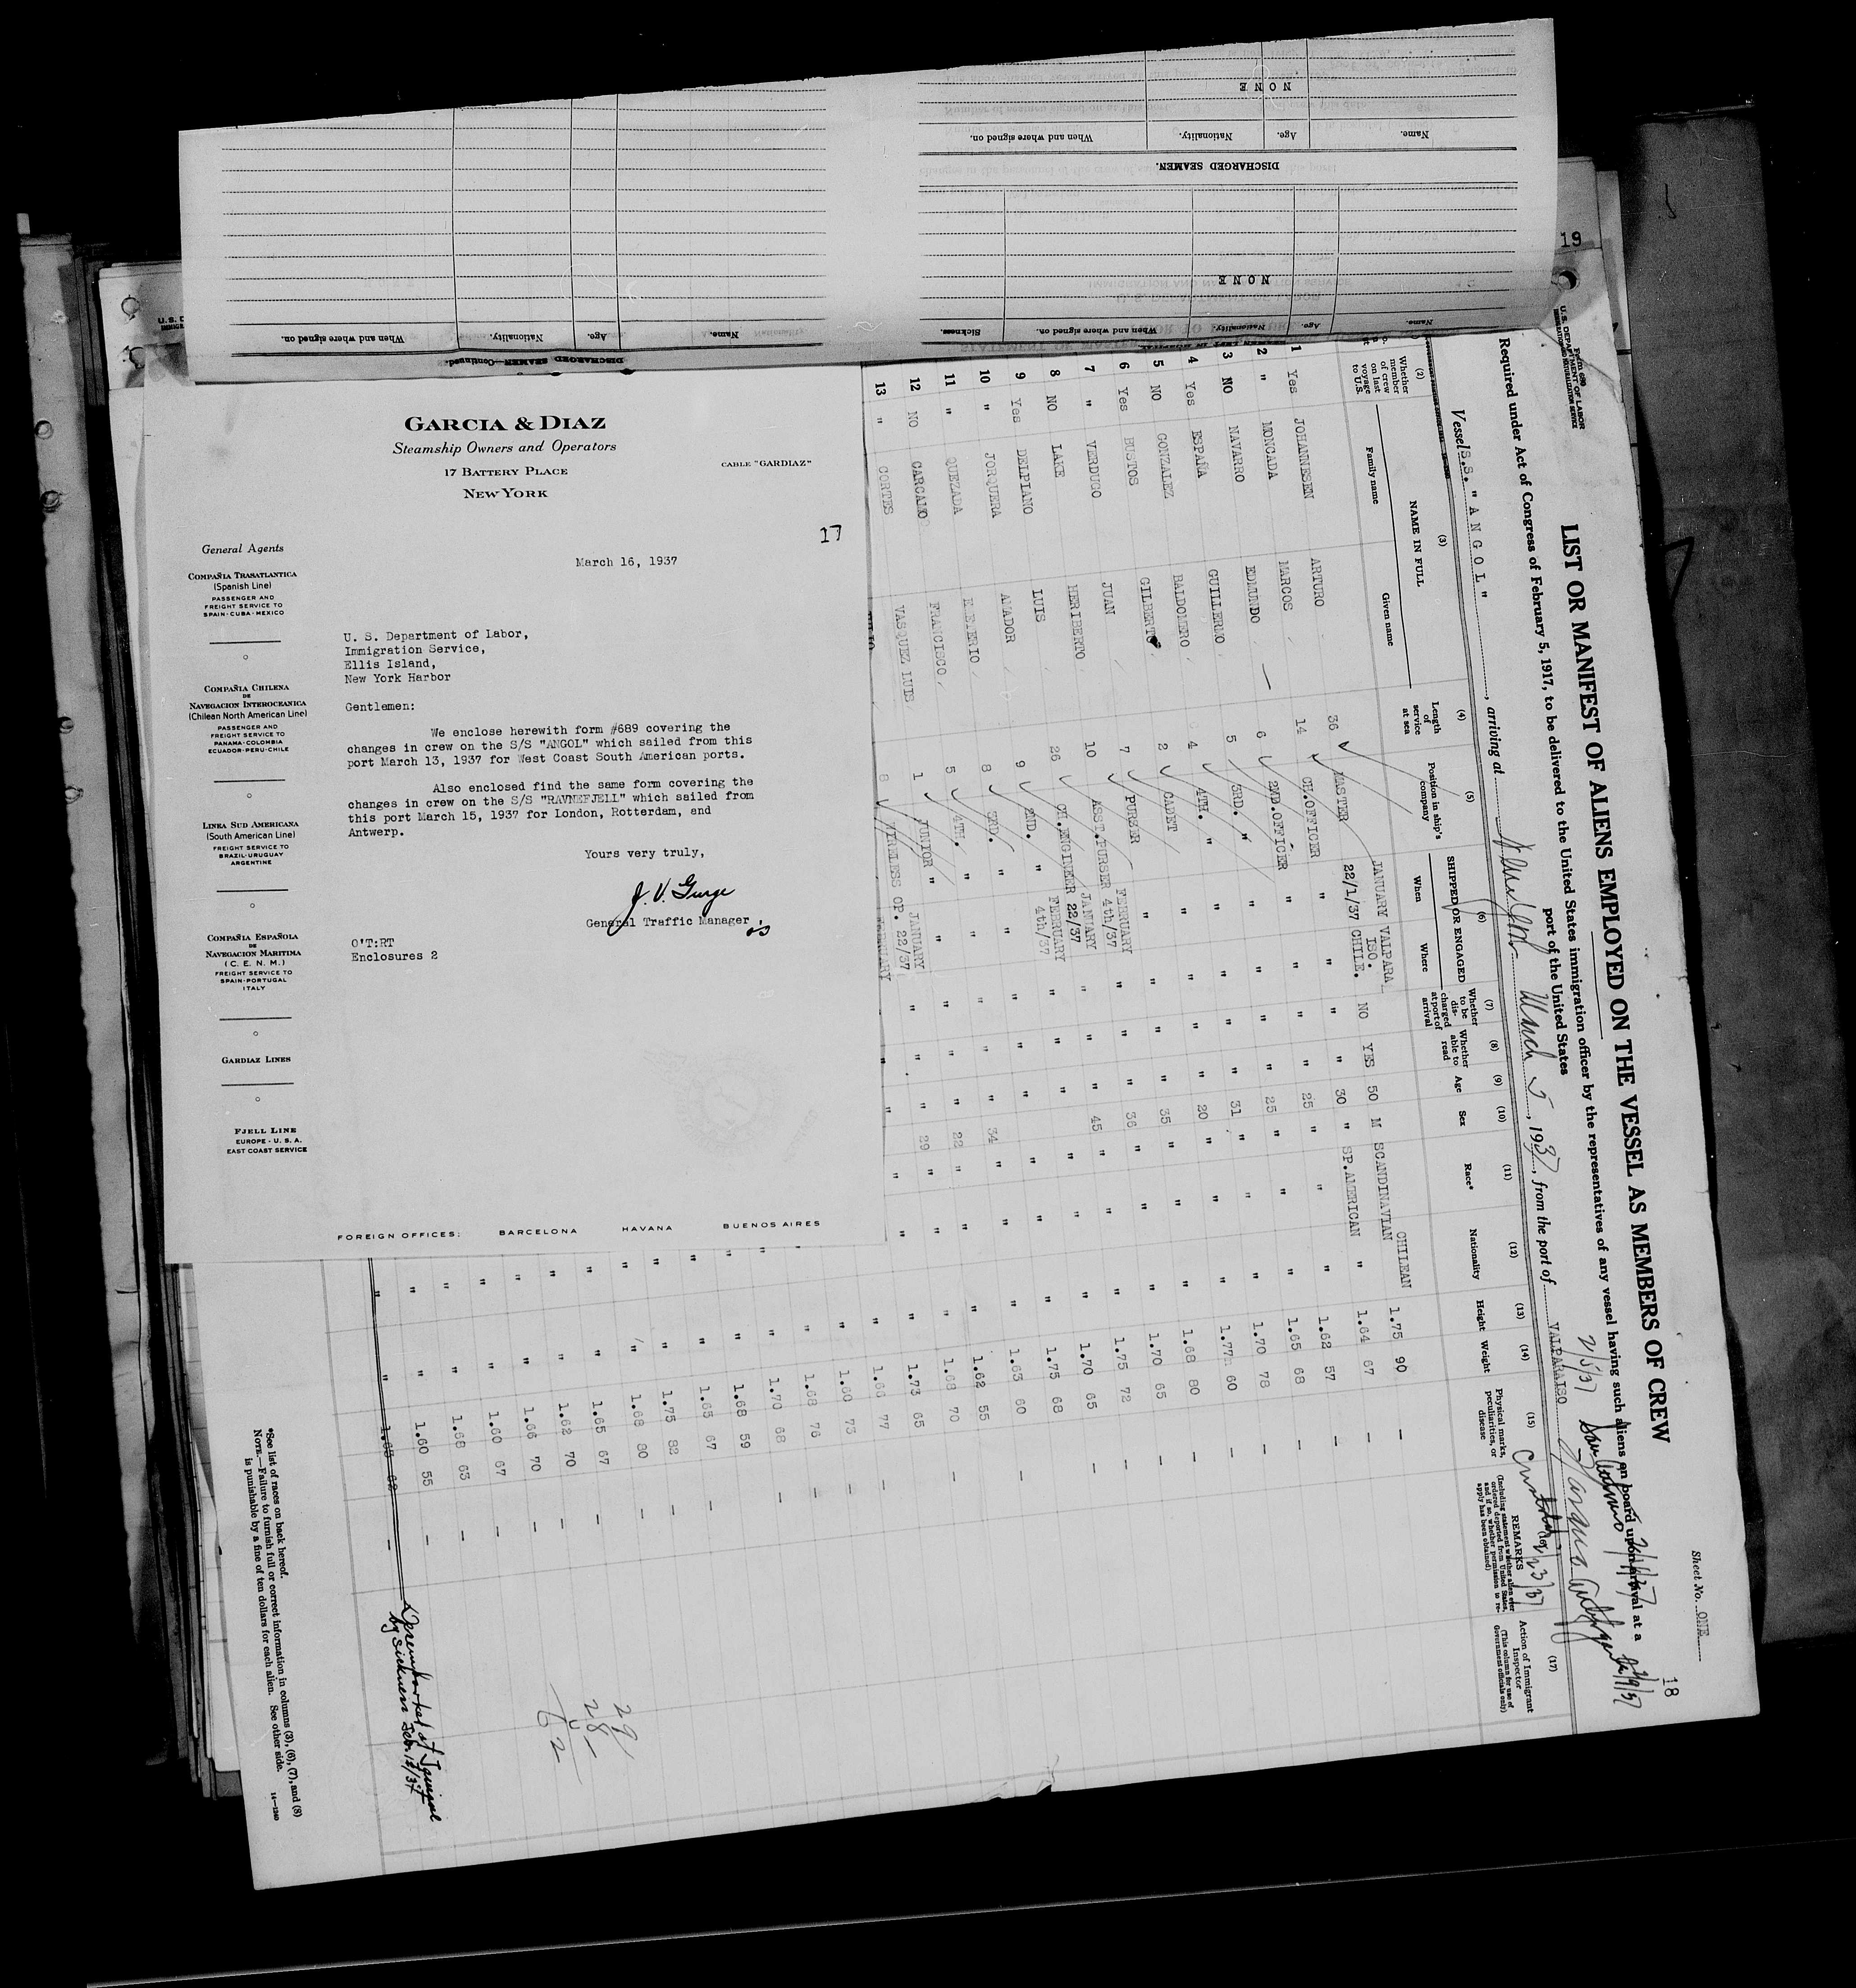 GARCIA & DIAZ
Steamship Owners and Operators
17 BATTERY PLACE
NEW YORK
CABLE "GARDIAZ"
17
March 16, 1937
General Agents
COMPAÑIA TRASATLANTICA
(Spanish Line)
PASSENGER AND
FREIGHT SERVICE TO
SPAIN·CUBA·MEXICO
COMPAÑIA CHILENA
DE
NAVEGACION INTEROCEANICA
(Chilean North American Line)
PASSENGER AND
FREIGHT SERVICE TO
PANAMA·COLOMBIA
ECUADOR·PERU·CHILE
LINEA SUD AMERICANA
(South American Line)
FREIGHT SERVICE TO
BRAZIL·URUGUAY
ARGENTINE
COMPAÑIA ESPAÑOLA
DE
NAVEGACION MARITIMA
(C. E. N. M.)
FREIGHT SERVICE TO
SPAIN·PORTUGAL
ITALY
GARDIAZ LINES
FJELL LINE
EUROPE - U. S. A.
EAST COAST SERVICE
U. S. Department of Labor,
Immigration Service,
Ellis Island,
New York Harbor
Gentlemen:
We enclose herewith form #689 covering the
changes in crew on the S/S "ANGOL" which sailed from this
port March 13, 1937 for West Coast South American ports.
Also enclosed find the same form covering the
changes in crew on the S/S "RAVNEFJELL" which sailed from
this port March 15, 1937 for London, Rotterdam, and
Antwerp.
Yours very truly,
General Traffic Manager
O'T:RT
Enclosures 2
FOREIGN OFFICES: BARCELONA HAVANA BUENOS AIRES
DISCHARGED SEAMEN—Continued.
Name. Age. Nationality. When and where signed on.
DISCHARGED SEAMEN.
Name. Age. Nationality. When and where signed on.
NONE
Name. Age. Nationality. When and where signed on. Sickness.
NONE
19
18
Sheet No. ONE
Form 689
U.S. DEPARTMENT OF LABOR
LIST OR MANIFEST OF ALIENS EMPLOYED ON THE VESSEL AS MEMBERS OF CREW
Required under Act of Congress of February 5, 1917, to be delivered to the United States immigration officer by the representatives of any vessel having such aliens on board upon arrival at a
port of the United States
Vessel S.S. "ANGOL", arriving at New York March 5, 1937, from the port of VALPARAISO
(2) Whether member of crew on last voyage to U.S.
(3) NAME IN FULL
Family name Given name
(4) Length of service at sea
(5) Position in ship's company
(6) SHIPPED OR ENGAGED
When Where
(7) Whether to be discharged at port of arrival
(8) Whether able to read
(9) Age
(10) Sex
(11) Race*
(12) Nationality
(13) Height
(14) Weight
(15) Physical marks, peculiarities, or disease
REMARKS
(Including statement whether alien ever ordered deported from United States, and if so, whether permission to reapply has been obtained)
(17) Action of Immigrant Inspector
(This column for use of Government officials only)
1 Yes JOHANNESEN ARTURO 36 MASTER JANUARY 22/1/37 VALPARAISO. CHILE. NO YES 50 M SCANDINAVIAN CHILEAN 1.75 90 —
2 " MONCADA MARCOS 14 CH.OFFICER " " " " 30 " SP.AMERICAN " 1.64 67 —
3 NO NAVARRO EDMUNDO 6 2ND.OFFICER " " " " 25 " " " 1.62 57 —
4 Yes ESPAÑA GUILLERMO 5 3RD. " " " " " 25 " " " 1.65 68 —
5 NO GONZALEZ BALDOMERO 4 4TH. " " " " " 31 " " " 1.70 78 —
6 Yes BUSTOS GILBERTO 2 CADET " " " " 20 " " " 1.77 60
7 " VERDUGO JUAN 7 PURSER " " " " 35 " " " 1.68 80 —
8 NO LAKE HERIBERTO 10 ASST.PURSER FEBRUARY 4th/37 " " " 36 " " " 1.70 65 —
9 Yes DELPIANO LUIS 26 CH.ENGINEER JANUARY 22/37 " " " 45 " " " 1.75 72 —
10 " JORQUERA AMADOR 9 2ND. " FEBRUARY 4th/37 " " " " " " 1.70 65
11 " QUEZADA 8 3RD. " " " " " 34 " " " 1.75 68 —
12 NO CARCAMO FRANCISCO 5 4TH. " " " " " 22 " " " 1.63 60
13 " CORTES VASQUEZ LUIS 1 JUNIOR " JANUARY 22/37 " " " 29 " " " 1.62 55 —
8 WIRELESS OP. FEBRUARY
1.68 70
1.73 65
1.66 77 —
1.60 73 —
1.68 76 —
1.70 68 —
1.68 59
1.65 67 —
1.75 82 —
1.68 80
1.65 67 —
1.62 70 —
1.66 70 —
1.60 67 —
1.68 63 —
1.60 55 —
1.63 62 —
by sickness Feb. 12/37
29
28
62
*See list of races on back hereof.
NOTE.—Failure to furnish full or correct information in columns (3), (6), (7), and (8)
is punishable by a fine of ten dollars for each alien. See other side.
14—1240